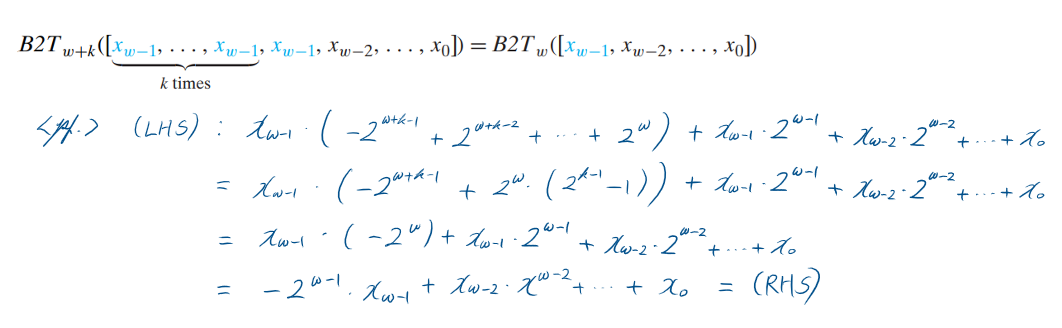 B2T_{w+k}([x_{w−1}, . . . , x_{w−1}, x_{w−1}, x_{w−2}, . . . , x_0]) = B2T_w([x_{w−1}, x_{w−2}, . . . , x_0])
k times
<pf.> (LHS) : x_{w-1} · (-2^{w+k-1} + 2^{w+k-2} + ··· + 2^w) + x_{w-1} · 2^{w-1} + x_{w-2} · 2^{w-2} + ··· + x_0
= x_{w-1} · (-2^{w+k-1} + 2^w · (2^{k-1} - 1)) + x_{w-1} · 2^{w-1} + x_{w-2} · 2^{w-2} + ··· + x_0
= x_{w-1} · (-2^w) + x_{w-1} · 2^{w-1} + x_{w-2} · 2^{w-2} + ··· + x_0
= -2^{w-1} · x_{w-1} + x_{w-2} · x^{w-2} + ··· + x_0 = (RHS)